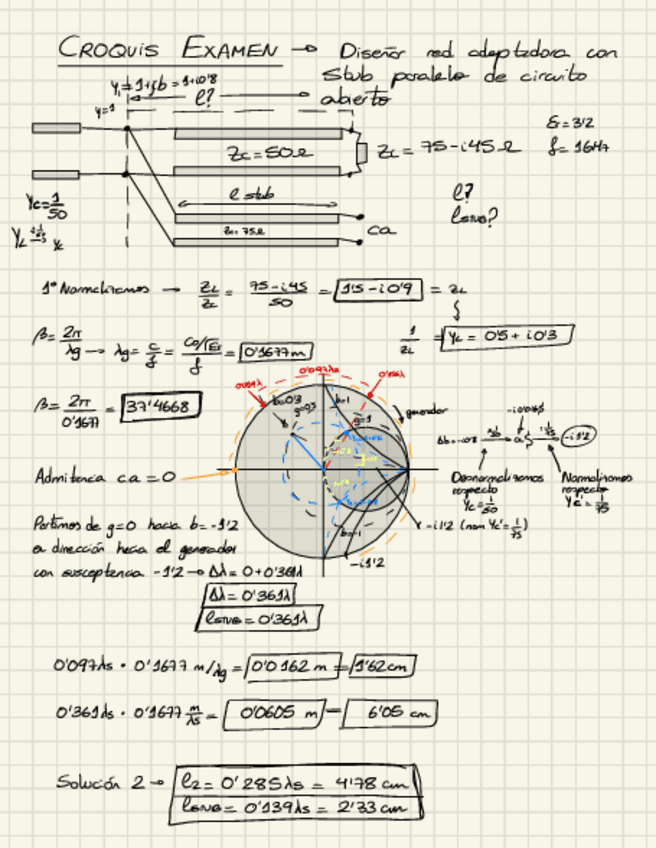 CROQUIS EXAMEN → Diseñar red adaptadora con
stub paralelo de circuito
abierto
y₁=1+jb = 1+i0'8
l?
y=1
Zc=50Ω
ZL = 75-i45Ω
εr=3'2
f=1GHz
l stub
Zc=75Ω
ca
l?
lSTUB?
Yc=1/50
1º Normalizamos → ZL/Zc = 75-i45/50 = 1'5-i0'9 = zL
1/zL = yL = 0'5+i0'3
β=2π/λg → λg = c/f = c0/√εr/f = 0'1677m
β=2π/0'1677 = 37'4668
0'097λs
b=0'3
g=0'5
b=1
g=1
generador
Admitancia ca=0
Desnormalizamos
respecto
Yc=1/50
Normalizamos
respecto
Yc'=1/75
-i1'2
-i1'2 (norm Yc'=1/75)
b=-1
-i1'2
Partimos de g=0 hacia b=-1'2
a dirección hacia el generador
con susceptancia -1'2 → Δλ = 0+0'361λ
Δλ=0'361λ
lSTUB=0'361λ
0'097λs · 0'1677 m/λg = 0'0162 m = 1'62cm
0'361λs · 0'1677 m/λs = 0'0605 m = 6'05 cm
Solución 2 → l2 = 0'285λs = 4'78 cm
lSTUB = 0'139λs = 2'33 cm